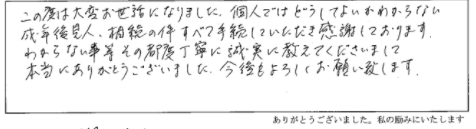 この度は大変お世話になりました。個人ではどうしてよいかわからない
成年後見人、相続の件すべて手続していただき感謝しております。
わからない事等その都度丁寧に誠実に教えてくださいまして
本当にありがとうございました。今後もよろしくお願い致します。
ありがとうございました。私の励みにいたします